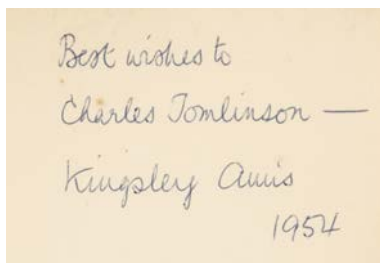 Best wishes to
Charles Tomlinson —
Kingsley Amis
1954